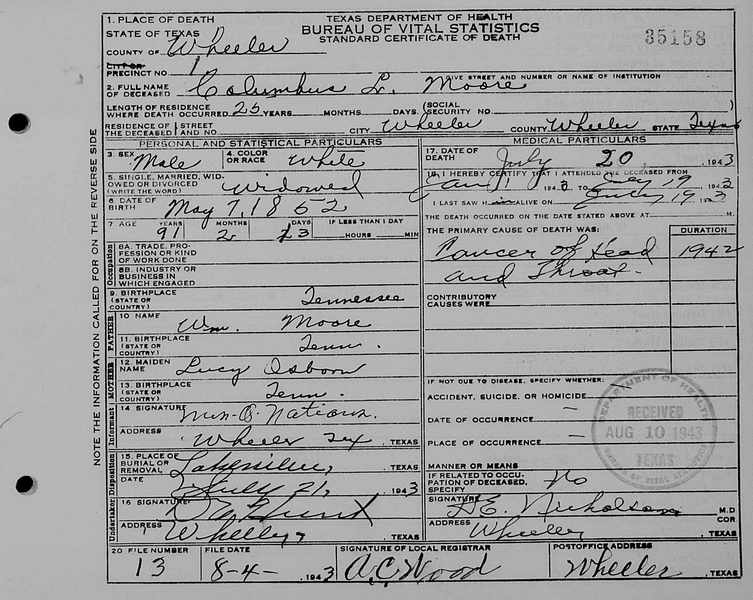 TEXAS DEPARTMENT OF HEALTH
BUREAU OF VITAL STATISTICS
STANDARD CERTIFICATE OF DEATH
35158
NOTE THE INFORMATION CALLED FOR ON THE REVERSE SIDE
1. PLACE OF DEATH
STATE OF TEXAS
COUNTY OF Wheeler
CITY OR
PRECINCT NO. 1
GIVE STREET AND NUMBER OR NAME OF INSTITUTION
2. FULL NAME OF DECEASED Columbus L. Moore
LENGTH OF RESIDENCE WHERE DEATH OCCURRED 25 YEARS MONTHS DAYS (SOCIAL SECURITY NO. )
RESIDENCE OF THE DECEASED STREET AND NO. CITY Wheeler COUNTY Wheeler STATE Texas
PERSONAL AND STATISTICAL PARTICULARS
3. SEX Male
4. COLOR OR RACE White
5. SINGLE, MARRIED, WIDOWED OR DIVORCED (WRITE THE WORD) Widowed
6. DATE OF BIRTH May 7, 1852
7. AGE YEARS 91 MONTHS 2 DAYS 13 IF LESS THAN 1 DAY HOURS MIN
Occupation
8A. TRADE, PROFESSION OR KIND OF WORK DONE
8B. INDUSTRY OR BUSINESS IN WHICH ENGAGED
9. BIRTHPLACE (STATE OR COUNTRY) Tennessee
FATHER
10 NAME Wm. Moore
11. BIRTHPLACE (STATE OR COUNTRY) Tenn.
MOTHER
12. MAIDEN NAME Lucy Osborn
13. BIRTHPLACE (STATE OR COUNTRY) Tenn.
Informant
14 SIGNATURE
ADDRESS Wheeler Tex, TEXAS
Undertaker Disposition
15. PLACE OF BURIAL OR REMOVAL
DATE July 21, 1943
16 SIGNATURE
ADDRESS Wheeler, TEXAS
MEDICAL PARTICULARS
17. DATE OF DEATH July 20, 1943
18. I HEREBY CERTIFY THAT I ATTENDED THE DECEASED FROM
Jan 1 194 TO July 19 194
I LAST SAW H ALIVE ON July 19 1943
THE DEATH OCCURRED ON THE DATE STATED ABOVE AT M.
THE PRIMARY CAUSE OF DEATH WAS: DURATION
Cancer of Head 1942
and Throat.
CONTRIBUTORY CAUSES WERE
IF NOT DUE TO DISEASE, SPECIFY WHETHER:
ACCIDENT, SUICIDE, OR HOMICIDE
DATE OF OCCURRENCE —
PLACE OF OCCURRENCE —
MANNER OR MEANS
IF RELATED TO OCCUPATION OF DECEASED, SPECIFY No
SIGNATURE H.E. Nicholson M.D
ADDRESS Wheeler, TEXAS COR
DEPARTMENT OF HEALTH
RECEIVED
AUG 10 1943
TEXAS
BUREAU OF VITAL STATISTICS
20 FILE NUMBER 13
FILE DATE 8-4- 1943
SIGNATURE OF LOCAL REGISTRAR A.C. Wood
POSTOFFICE ADDRESS Wheeler, TEXAS